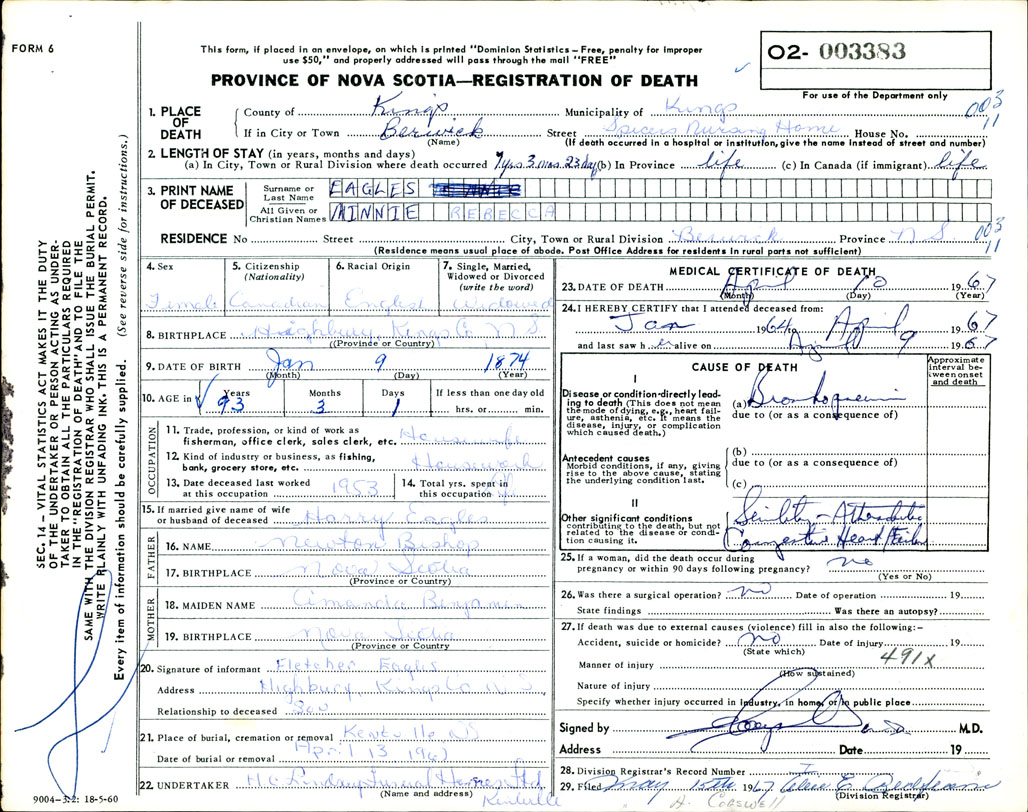 FORM 6
This form, if placed in an envelope, on which is printed "Dominion Statistics – Free, penalty for improper
use $50," and properly addressed will pass through the mail "FREE"
PROVINCE OF NOVA SCOTIA—REGISTRATION OF DEATH
02- 003383
For use of the Department only
003
11
1. PLACE OF DEATH
County of Kings Municipality of Kings
If in City or Town Berwick Street Spicers Nursing Home House No.
(Name) (If death occurred in a hospital or institution, give the name instead of street and number)
2. LENGTH OF STAY (in years, months and days)
(a) In City, Town or Rural Division where death occurred 7 yrs 3 mos. 23 days (b) In Province life (c) In Canada (if immigrant) life
3. PRINT NAME OF DECEASED
Surname or Last Name EAGLES
All Given or Christian Names MINNIE REBECCA
RESIDENCE No Street City, Town or Rural Division Berwick Province N.S. 003
11
(Residence means usual place of abode. Post Office Address for residents in rural parts not sufficient)
4. Sex 5. Citizenship (Nationality) 6. Racial Origin 7. Single, Married, Widowed or Divorced (write the word)
Female Canadian English Widowed
8. BIRTHPLACE Highbury, Kings Co. N S
(Province or Country)
9. DATE OF BIRTH Jan 9 1874
(Month) (Day) (Year)
10. AGE in Years Months Days If less than one day old
93 3 1 hrs. or min.
OCCUPATION
11. Trade, profession, or kind of work as
fisherman, office clerk, sales clerk, etc. Housewife
12. Kind of industry or business, as fishing,
bank, grocery store, etc. Housework
13. Date deceased last worked
at this occupation 1953
14. Total yrs. spent in
this occupation
15. If married give name of wife
or husband of deceased Harry Eagles
FATHER
16. NAME Newton Bishop
17. BIRTHPLACE Nova Scotia
(Province or Country)
MOTHER
18. MAIDEN NAME Amanda Benjamin
19. BIRTHPLACE Nova Scotia
(Province or Country
20. Signature of informant Fletcher Eagles
Address Highbury Kings Co N S
Relationship to deceased Son
21. Place of burial, cremation or removal Kentville NS
Date of burial or removal April 13 1967
22. UNDERTAKER H.C. Lindsay Funeral Homes Ltd
(Name and address) Kentville
9004-3.2: 18-5-60
MEDICAL CERTIFICATE OF DEATH
23. DATE OF DEATH April 10 1967
(Month) (Day) (Year)
24. I HEREBY CERTIFY that I attended deceased from:
Jan 1964 April 1967
and last saw her alive on April 9 1967
CAUSE OF DEATH
Approximate interval between onset and death
I
Disease or condition directly leading to death (This does not mean the mode of dying, e.g., heart failure, asthenia, etc. It means the disease, injury, or complication which caused death.)
(a)
due to (or as a consequence of)
Antecedent causes
Morbid conditions, if any, giving rise to the above cause, stating the underlying condition last.
(b)
due to (or as a consequence of)
(c)
II
Other significant conditions
contributing to the death, but not related to the disease or condition causing it.
Senility
Congestive Heart Failure
25. If a woman, did the death occur during
pregnancy or within 90 days following pregnancy? no
(Yes or No)
26. Was there a surgical operation? no Date of operation 19
State findings Was there an autopsy?
27. If death was due to external causes (violence) fill in also the following:—
Accident, suicide or homicide? no Date of injury 19
(State which) 491x
Manner of injury
(How sustained)
Nature of injury
Specify whether injury occurred in industry, in home, or in public place
Signed by M.D.
Address Date 19
28. Division Registrar's Record Number
29. Filed May 15th 1967
(Division Registrar)
A. COGSWELL
SEC. 14 — VITAL STATISTICS ACT MAKES IT THE DUTY
OF THE UNDERTAKER OR PERSON ACTING AS UNDER-
TAKER TO OBTAIN ALL THE PARTICULARS REQUIRED
IN THE "REGISTRATION OF DEATH" AND TO FILE THE
SAME WITH THE DIVISION REGISTRAR WHO SHALL ISSUE THE BURIAL PERMIT.
WRITE PLAINLY WITH UNFADING INK. THIS IS A PERMANENT RECORD.
Every item of information should be carefully supplied. (See reverse side for instructions.)